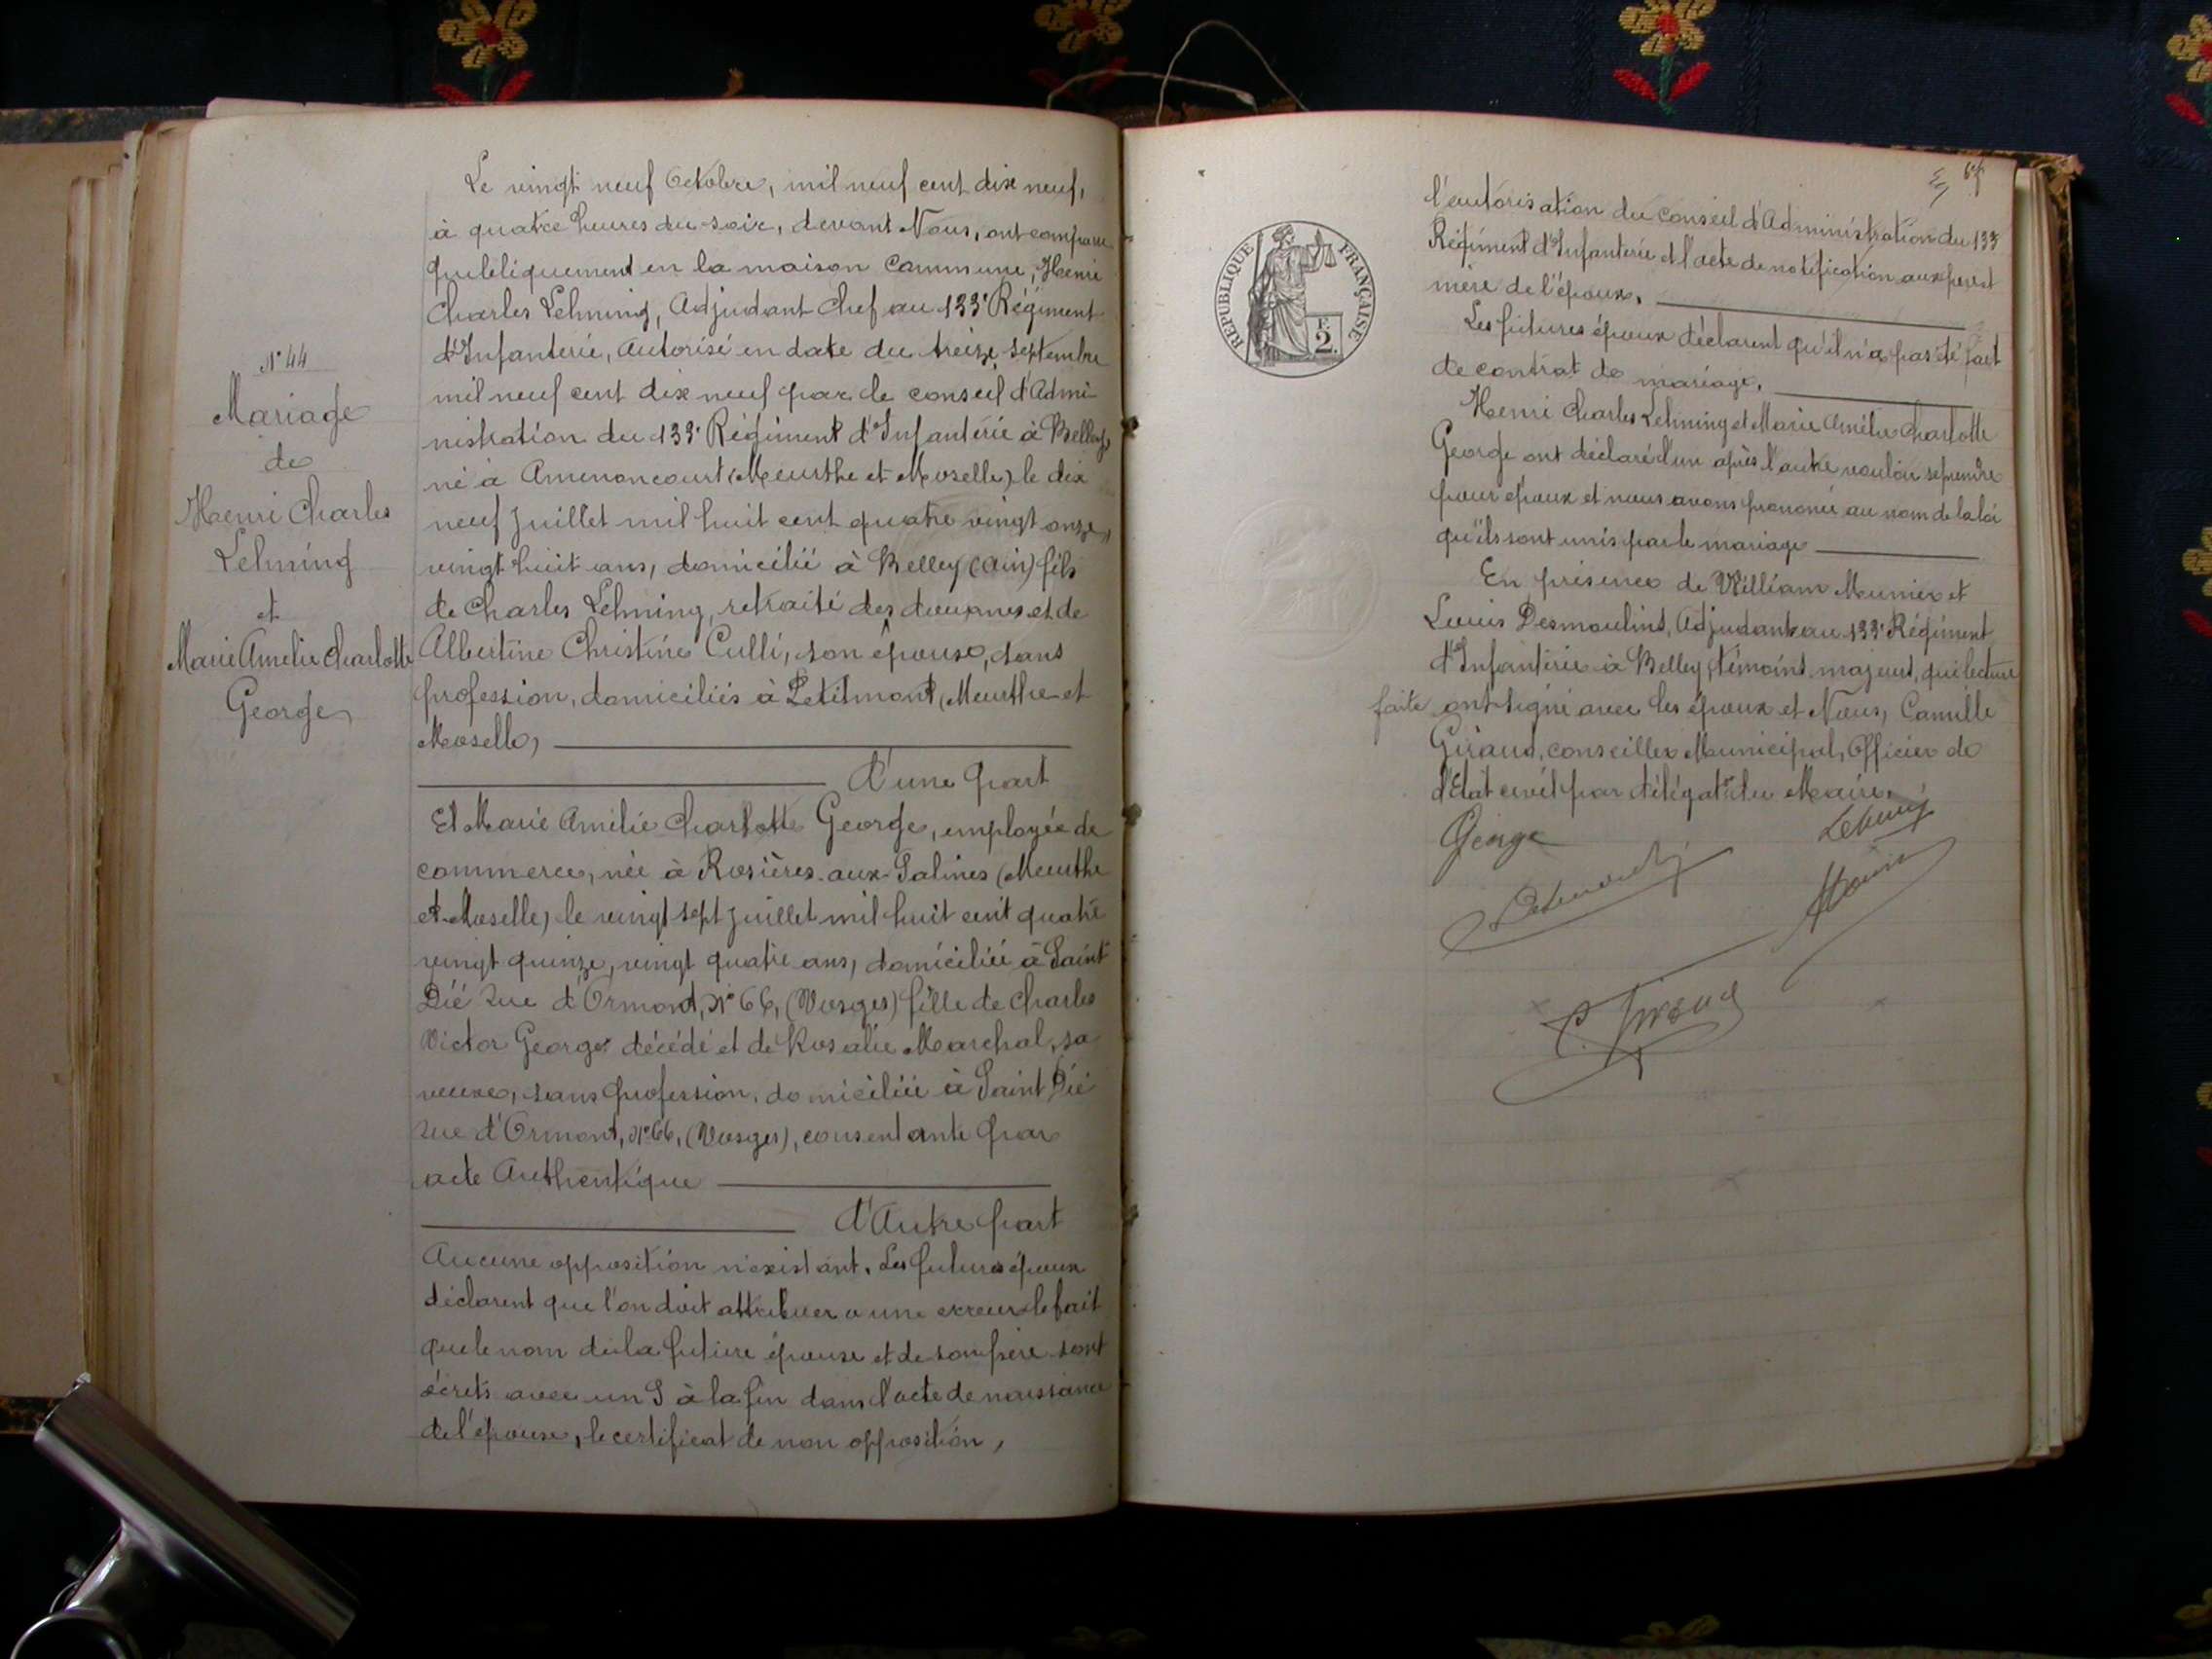 N° 44
Mariage
de
Henri Charles
Lehning
et
Marie Amélie Charlotte
George
Le vingt neuf Octobre, mil neuf cent dix neuf,
à quatre heures du soir, devant Nous, ont comparu
publiquement en la maison commune, Henri
Charles Lehning, Adjudant Chef au 133e Régiment
d'Infanterie, Autorisé en date du treize septembre
mil neuf cent dix neuf par le conseil d'Admi
nistration du 133e Régiment d'Infanterie à Belley,
né à Amenoncourt (Meurthe et Moselle) le dix
neuf Juillet mil huit cent quatre vingt onze,
vingt huit ans, domicilié à Belley (Ain) fils
de Charles Lehning, retraité des douanes et de
Albertine Christine Culli, son épouse, sans
profession, domiciliés à Petitmont (Meurthe et
Moselle)
d'une part
Et Marie Amélie Charlotte George, employée de
commerce, née à Rosières-aux-Salines (Meurthe
et Moselle) le vingt sept juillet mil huit cent quatre
vingt quinze, vingt quatre ans, domiciliée à Saint
Dié rue d'Ormont, N° 66, (Vosges) fille de Charles
Victor George décédé et de Rosalie Marchal, sa
veuve, sans profession, domiciliée à Saint Dié
rue d'Ormont, N° 66, (Vosges), consentante par
acte Authentique
d'Autre part
Aucune opposition n'existant. Les futurs époux
déclarent que l'on doit attribuer a une erreur le fait
que le nom de la future épouse et de son père sont
écrits avec un S à la fin dans l'acte de naissance
de l'épouse, le certificat de non opposition,
l'autorisation du conseil d'Administration du 133
Régiment d'Infanterie et l'acte de notification aux père et
mère de l'époux.
Les futures époux déclarent qu'il n'a pas été fait
de contrat de mariage.
Henri Charles Lehning et Marie Amélie Charlotte
George ont déclaré l'un après l'autre vouloir se prendre
pour époux et nous avons prononcé au nom de la loi
qu'ils sont unis par le mariage
En présence de William Meunier et
Louis Desmoulins, Adjudants au 133e Régiment
d'Infanterie à Belley, témoins majeurs, qui lecture
faite ont signé avec les époux et Nous, Camille
Giraud, conseiller Municipal, Officier de
l'Etat civil par délégation du Maire.
George
Lehning
C. Giraud
REPUBLIQUE FRANÇAISE
2